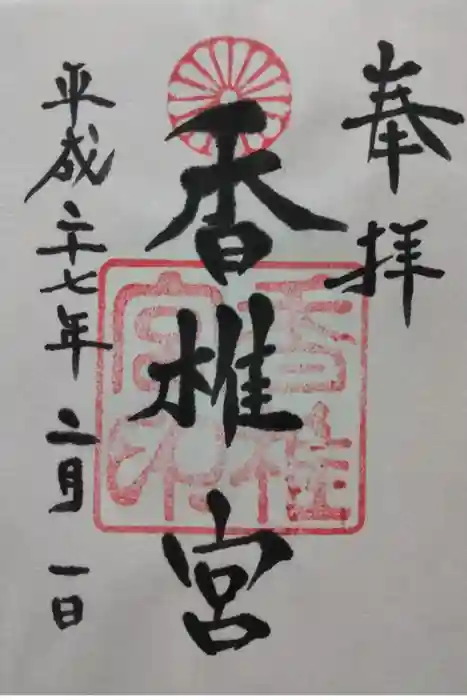 奉拝
香椎宮
香椎宮印
平成二十七年二月一日